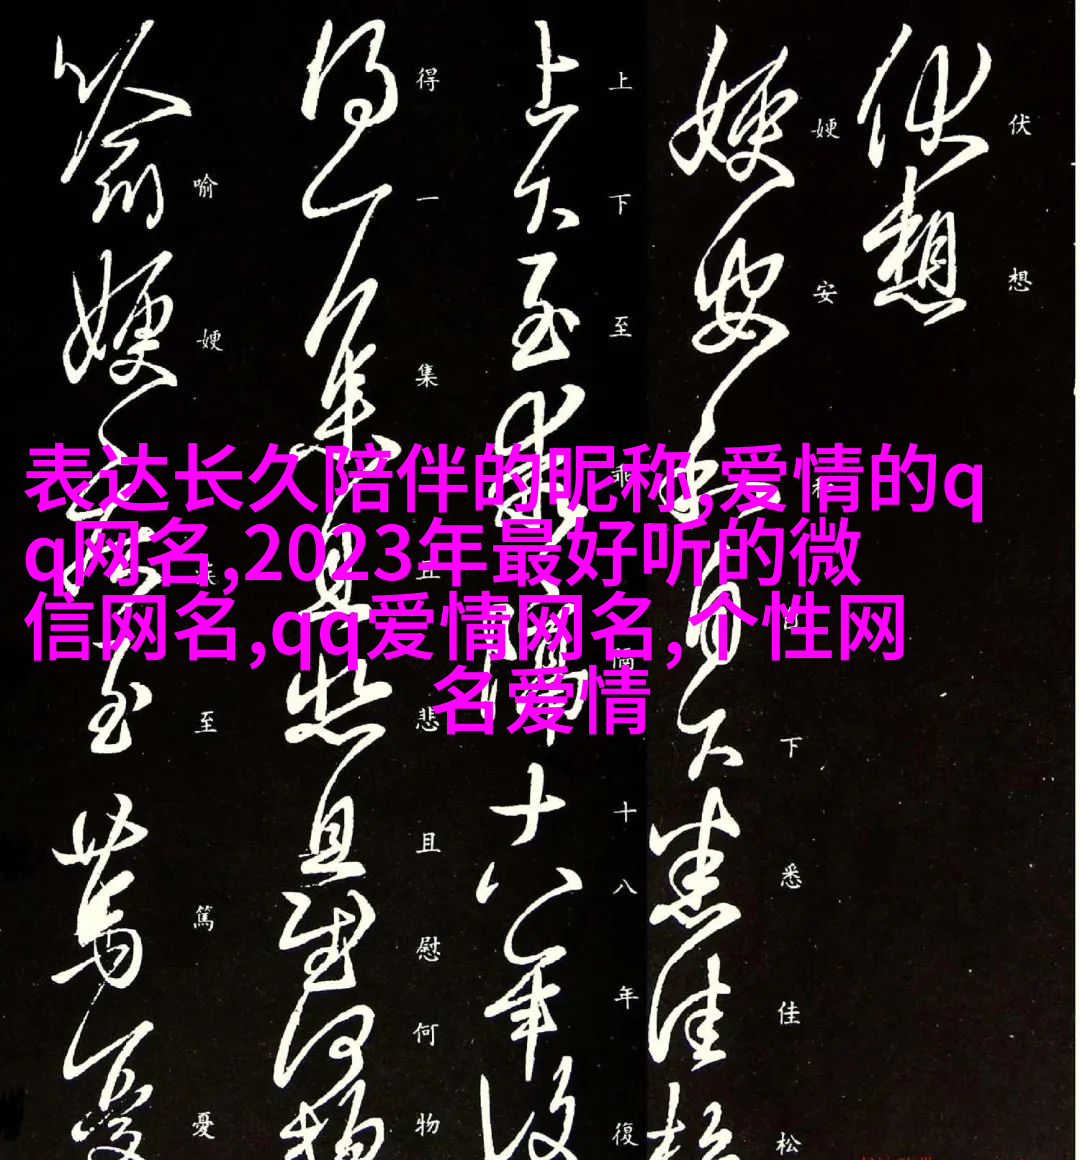 伏想
嫂安和自下悉佳松
上下至乖隔十八年復
得一集且悲且慰何物
喻嫂疾至篤憂
表达长久陪伴的昵称,爱情的q
q网名,2023年最好听的微
信网名,qq爱情网名,个性网
名爱情